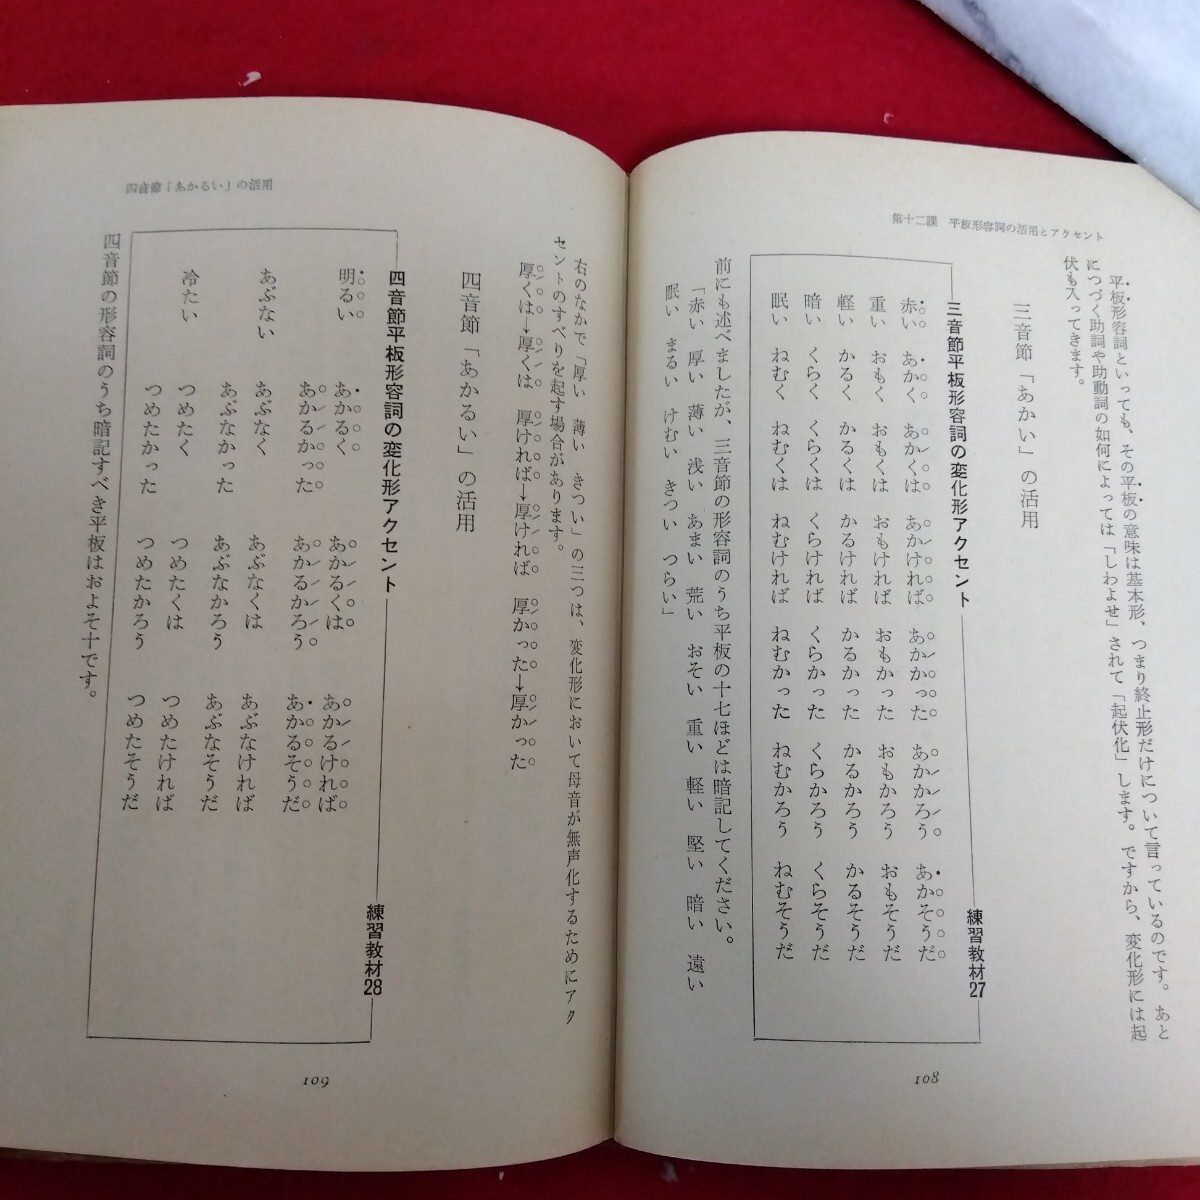 第十二課 平板形容詞の活用とアクセント
平板形容詞といっても、その平板の意味は基本形、つまり終止形だけについて言っているのです。あと
につづく助詞や助動詞の如何によっては「しわよせ」されて「起伏化」します。ですから、変化形には起
伏も入ってきます。
三音節「あかい」の活用
三音節平板形容詞の変化形アクセント 練習教材27
赤い あかく あかくは あかければ あかかった あかかろう あかそうだ
重い おもく おもくは おもければ おもかった おもかろう おもそうだ
軽い かるく かるくは かるければ かるかった かるかろう かるそうだ
暗い くらく くらくは くらければ くらかった くらかろう くらそうだ
眠い ねむく ねむくは ねむければ ねむかった ねむかろう ねむそうだ
前にも述べましたが、三音節の形容詞のうち平板の十七ほどは暗記してください。
「赤い 厚い 薄い 浅い あまい 荒い おそい 重い 軽い 堅い 暗い 遠い
眠い まるい けむい きつい つらい」
108
四音節「あかるい」の活用
右のなかで「厚い 薄い きつい」の三つは、変化形において母音が無声化するためにアク
セントのすべりを起す場合があります。
厚くは→厚くは 厚ければ→厚ければ 厚かった→厚かった
四音節「あかるい」の活用
四音節平板形容詞の変化形アクセント 練習教材28
明るい あかるく あかるくは あかるければ
あかるかった あかるかろう あかるそうだ
あぶない あぶなく あぶなくは あぶなければ
あぶなかった あぶなかろう あぶなそうだ
冷たい つめたく つめたくは つめたければ
つめたかった つめたかろう つめたそうだ
四音節の形容詞のうち暗記すべき平板はおよそ十です。
109